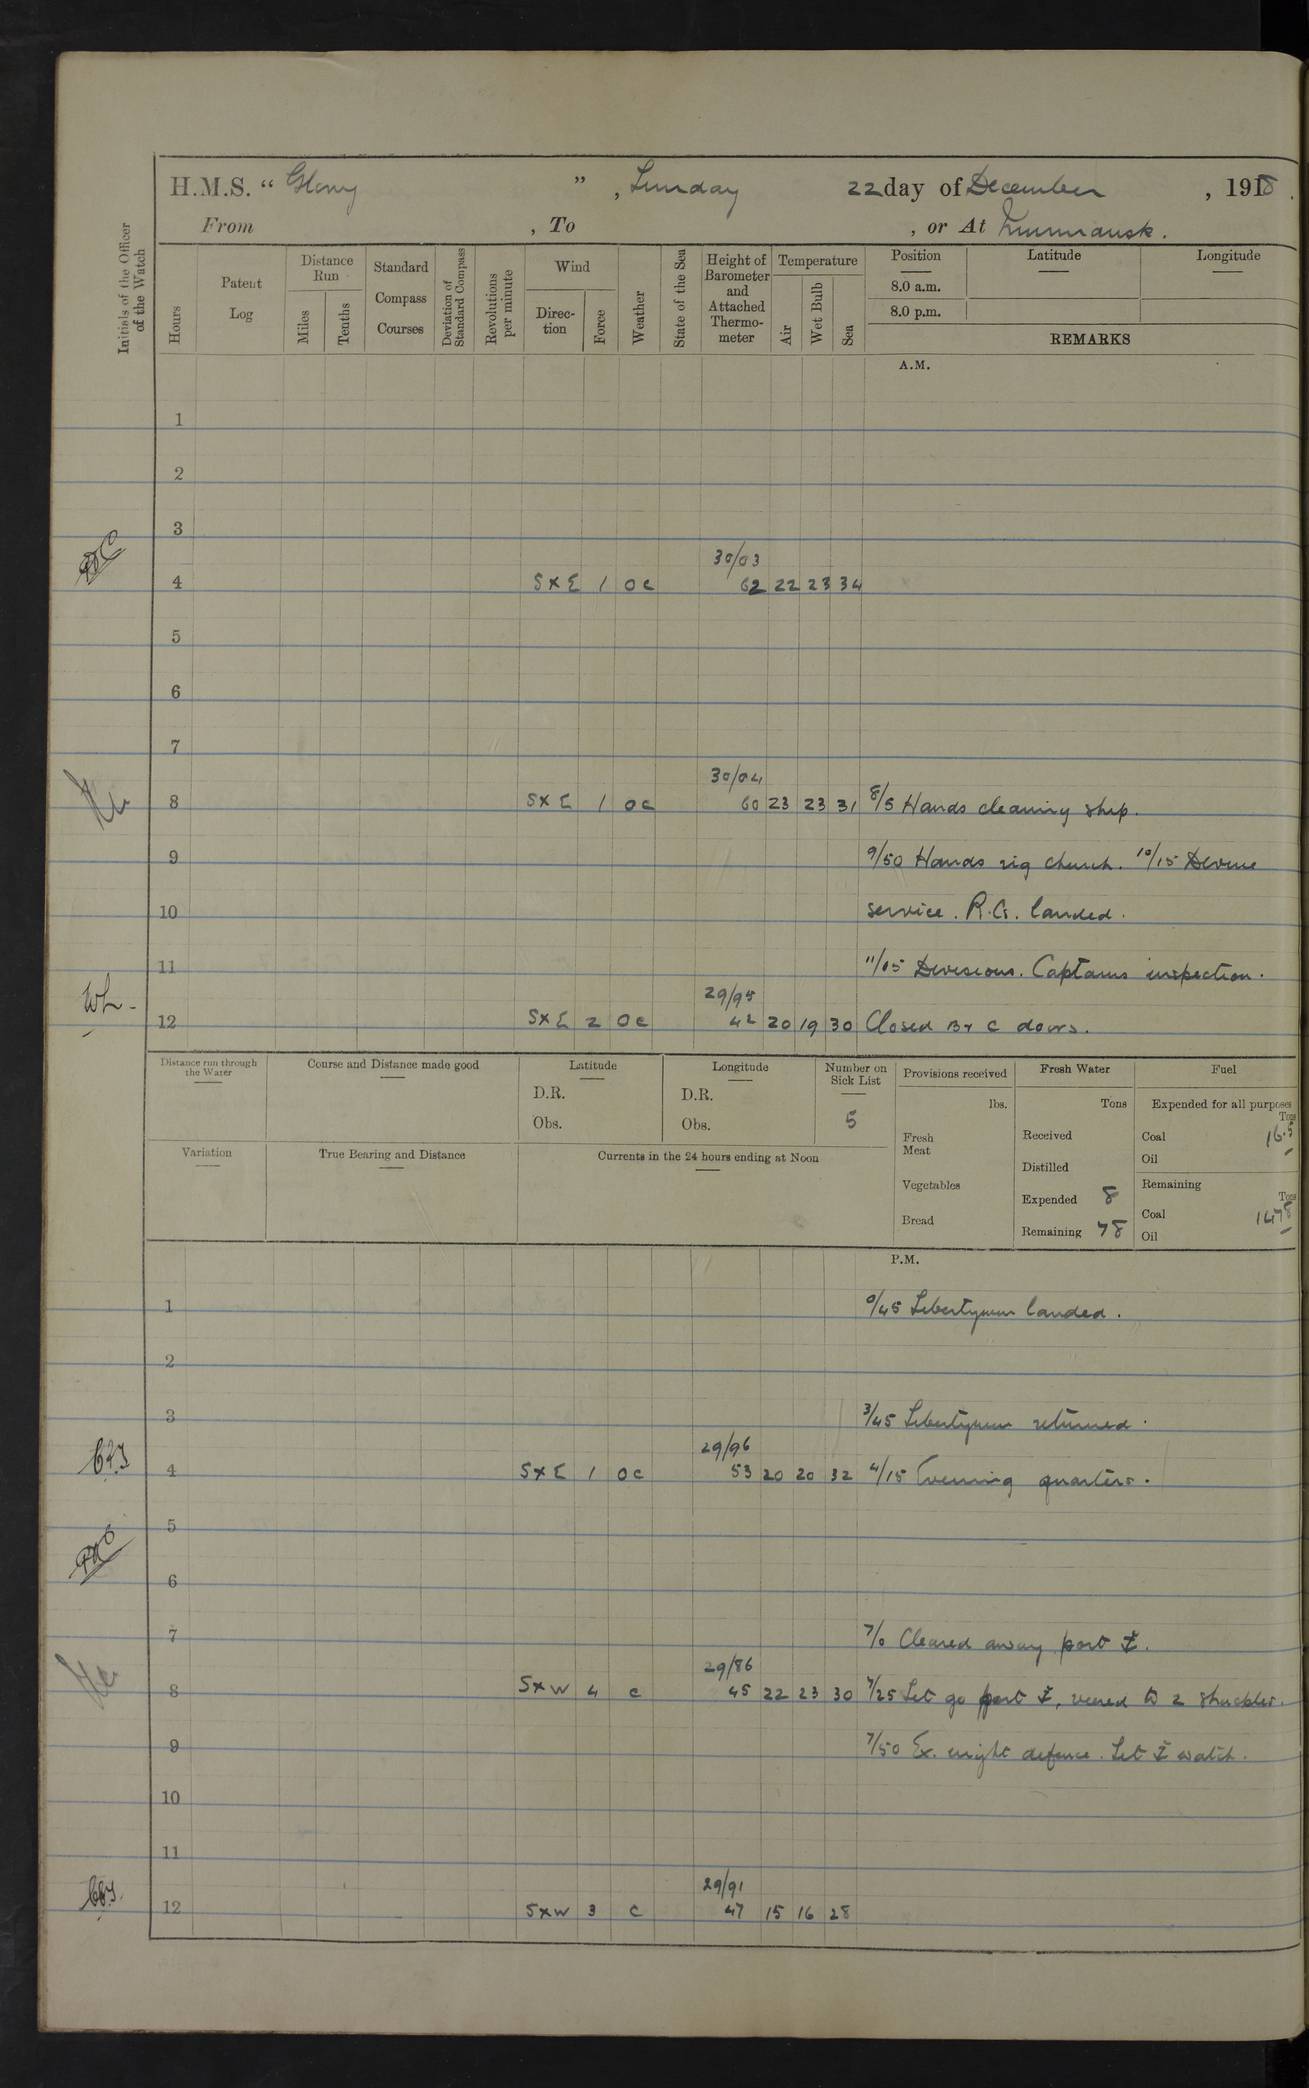 H.M.S. “ Glory ” , Sunday 22 day of December , 1918 .
From , To , or At Murmansk .
Initials of the Officer of the Watch
Hours
Patent Log
Distance Run
Miles
Tenths
Standard Compass Courses
Deviation of Standard Compass
Revolutions per minute
Wind
Direction
Force
Weather
State of the Sea
Height of Barometer and Attached Thermometer
Temperature
Air
Wet Bulb
Sea
Position
8.0 a.m.
8.0 p.m.
Latitude
Longitude
REMARKS
A.M.
1
2
3
30/03
4 S x E 1 oc 62 22 23 34
5
6
7
30/04
8 S x E 1 oc 60 23 23 31 8/5 Hands cleaning ship.
9 9/50 Hands rig church. 10/15 Devine
10 service. R.Cs. landed.
11 11/05 Divisions. Captains inspection.
29/95
WL
12 S x E 2 oc 42 20 19 30 Closed B & C doors.
Distance run through the Water
Course and Distance made good
Latitude
D.R.
Obs.
Longitude
D.R.
Obs.
Number on Sick List
5
Variation
True Bearing and Distance
Currents in the 24 hours ending at Noon
Provisions received
lbs.
Fresh Meat
Vegetables
Bread
Fresh Water
Tons
Received
Distilled
Expended 8
Remaining 78
Fuel
Expended for all purposes
Tons
Coal 16.5
Oil
Remaining
Tons
Coal 1478
Oil
P.M.
1 0/45 Libertymen landed.
2
3 3/45 Libertymen returned.
29/96
4 S x E 1 oc 53 20 20 32 4/15 Evening quarters.
5
6
7 7/0 Cleared away port ⚓.
29/86
8 S x W 4 c 45 22 23 30 7/25 Let go port ⚓, veered to 2 shackles.
9 7/50 Ex. night defence. Set ⚓ watch.
10
11
29/91
12 S x W 3 c 47 15 16 28